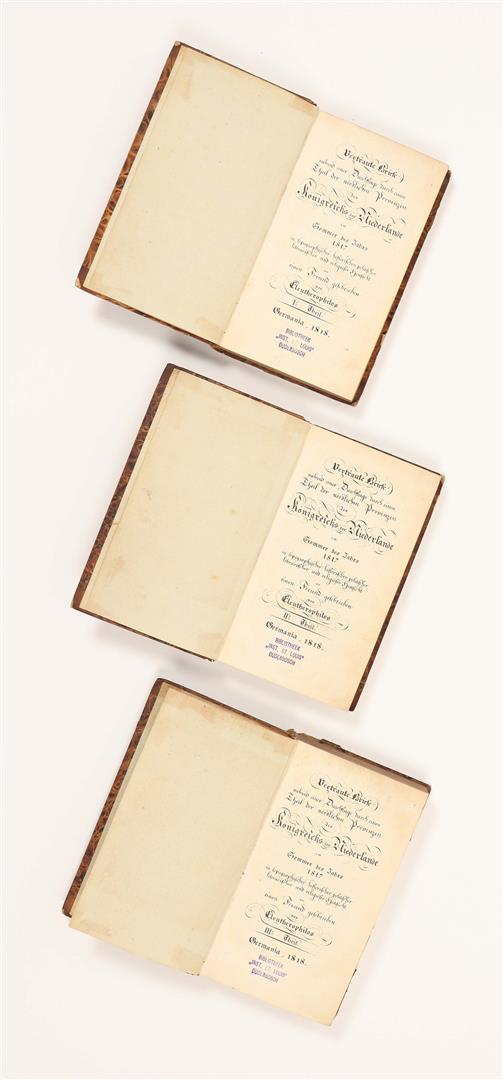 Vertraute Briefe
während einer Durchflug durch einen
Theil der nördlichen Provinzen
des
Königreichs der Niederlande
im
Sommer des Jahrs
1817
in topographischer, historischer, politischer
literarischer und religiöser Hinsicht
an
einen Freund geschrieben
von
Eleutherophilos
Ir Theil.
Germania, 1818.
BIBLIOTHEEK
„INST. ST. LOUIS"
OUDENBOSCH
Vertraute Briefe
während einer Durchflug durch einen
Theil der nördlichen Provinzen
des
Königreichs der Niederlande
im
Sommer des Jahrs
1817
in topographischer, historischer, politischer
literarischer und religiöser Hinsicht
an
einen Freund geschrieben
von
Eleutherophilos
IIr Theil.
Germania, 1818.
BIBLIOTHEEK
„INST. ST. LOUIS"
OUDENBOSCH
Vertraute Briefe
während einer Durchflug durch einen
Theil der nördlichen Provinzen
des
Königreichs der Niederlande
im
Sommer des Jahrs
1817
in topographischer, historischer, politischer
literarischer und religiöser Hinsicht
an
einen Freund geschrieben
von
Eleutherophilos
IIIr Theil.
Germania, 1818.
BIBLIOTHEEK
„INST. ST. LOUIS"
OUDENBOSCH